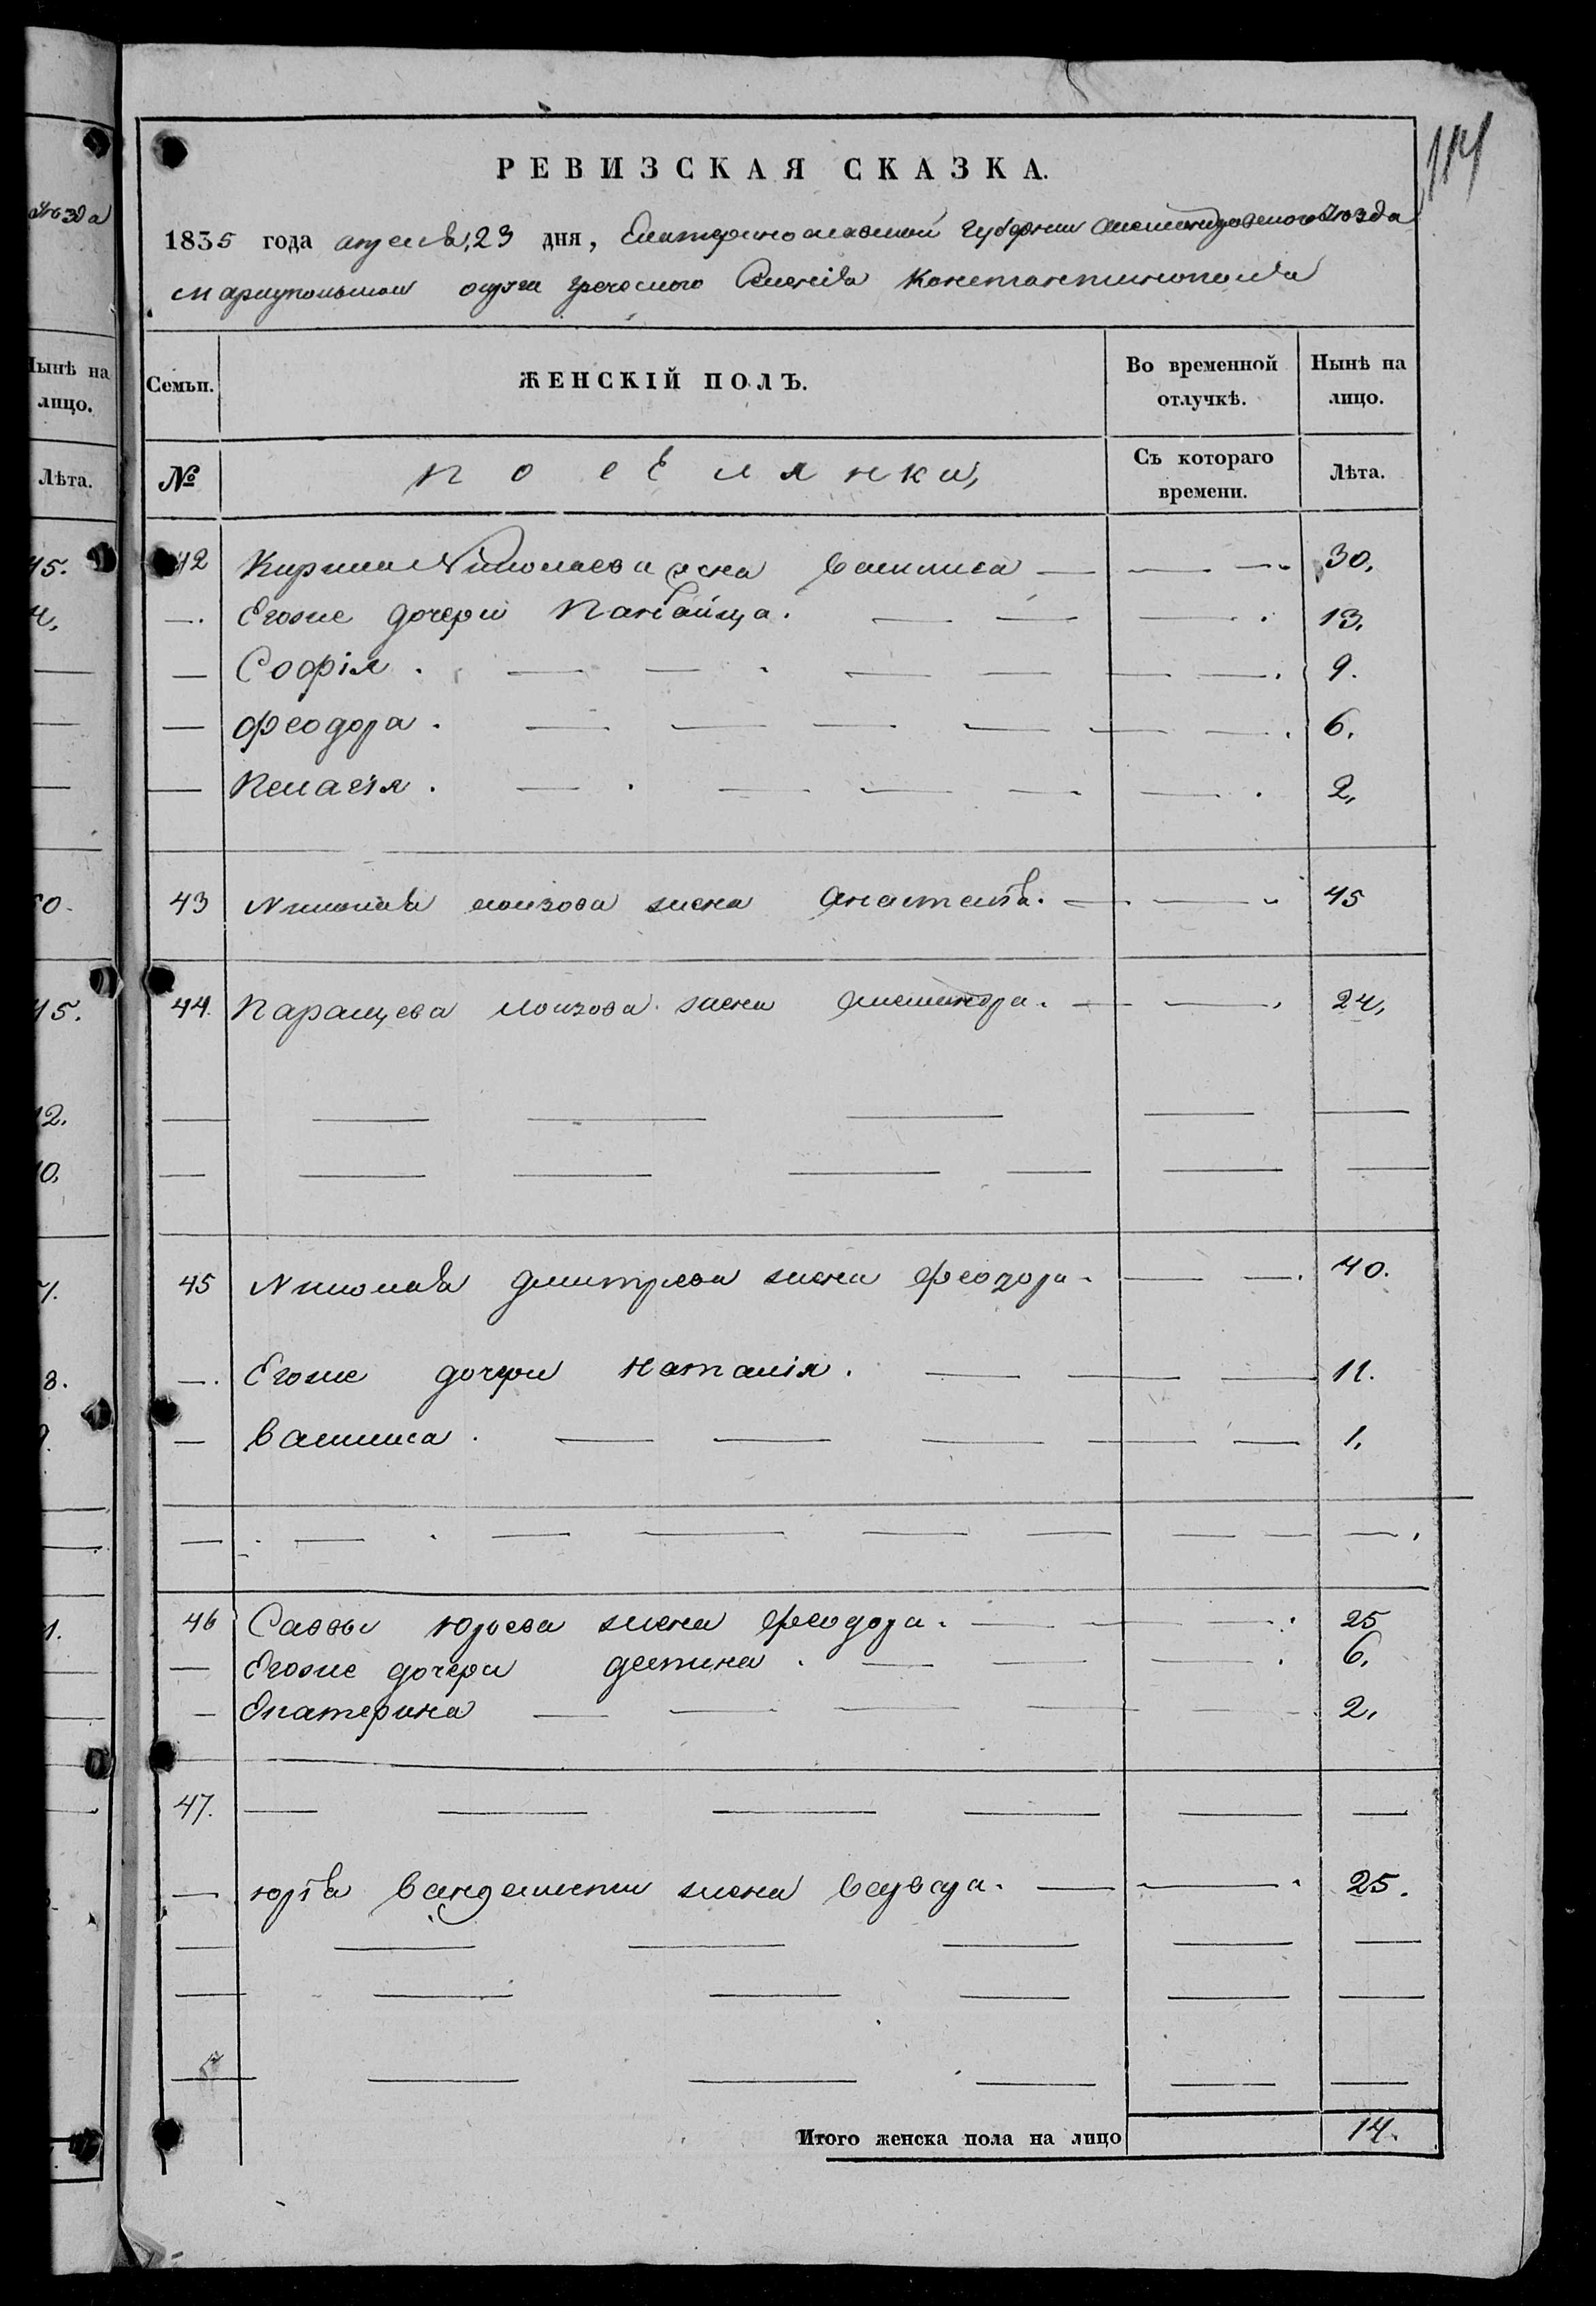 114
РЕВИЗСКАЯ СКАЗКА.
1835 года апреля, 23 дня, Екатеринославской губернии Александровского уѣзда
Мариупольском округа греческого Селенія Константинополя
Семьи.
ЖЕНСКІЙ ПОЛЪ.
Во временной отлучкѣ.
Нынѣ на лицо.
№
поселянки,
Съ котораго времени.
Лѣта.
42 Кирила Николаева жена Василиса — 30.
—. Егоже дочери — 13.
— Софія. — 9.
— Феодора. — 6.
— Пелагія. — 2,
43 Николая жена Анастасія. — 45
44. жена Александра. — 24,
45 Николая Дмитрева жена Феодора. — 40.
—. Егоже дочери Наталія. — 11.
— Василиса. — 1.
46 Саввы Юрьева жена Феодора. — 25
— Егоже дочери — 6.
— Екатерина — 2.
47. —
— Юрія жена — 25.
Итого женска пола на лицо 14.
ѣзда
Нынѣ на
лицо.
Лѣта.